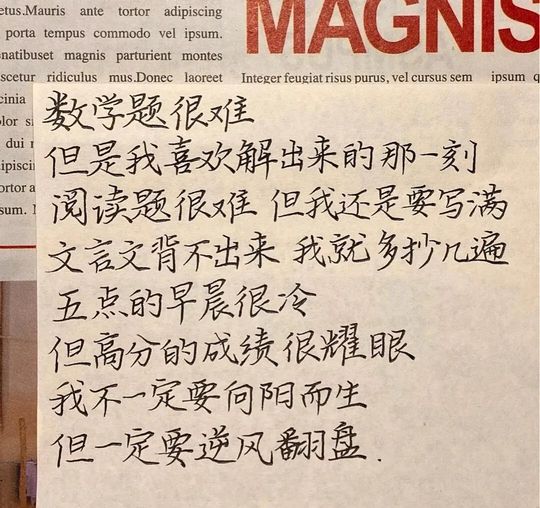 etus.Mauris ante tortor adipiscing
porta tempus commodo vel ipsum.
enatibuset magnis parturient montes
ascetur ridiculus mus.Donec laoreet
MAGNIS
Integer feugiat risus purus, vel cursus sem ipsum q
数学题很难
但是我喜欢解出来的那一刻
阅读题很难 但我还是要写满
文言文背不出来 我就多抄几遍
五点的早晨很冷
但高分的成绩很耀眼
我不一定要向阳而生
但一定要逆风翻盘.